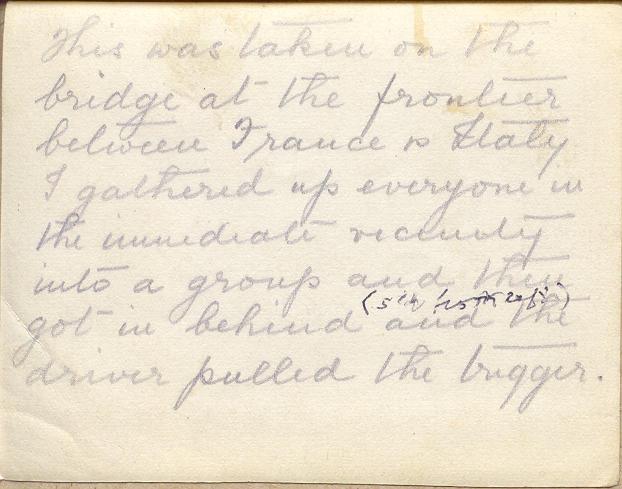 This was taken on the
bridge at the frontier
between France & Italy
I gathered up everyone in
the immediate vicinity
into a group and then
(5th from left)
got in behind and the
driver pulled the trigger.